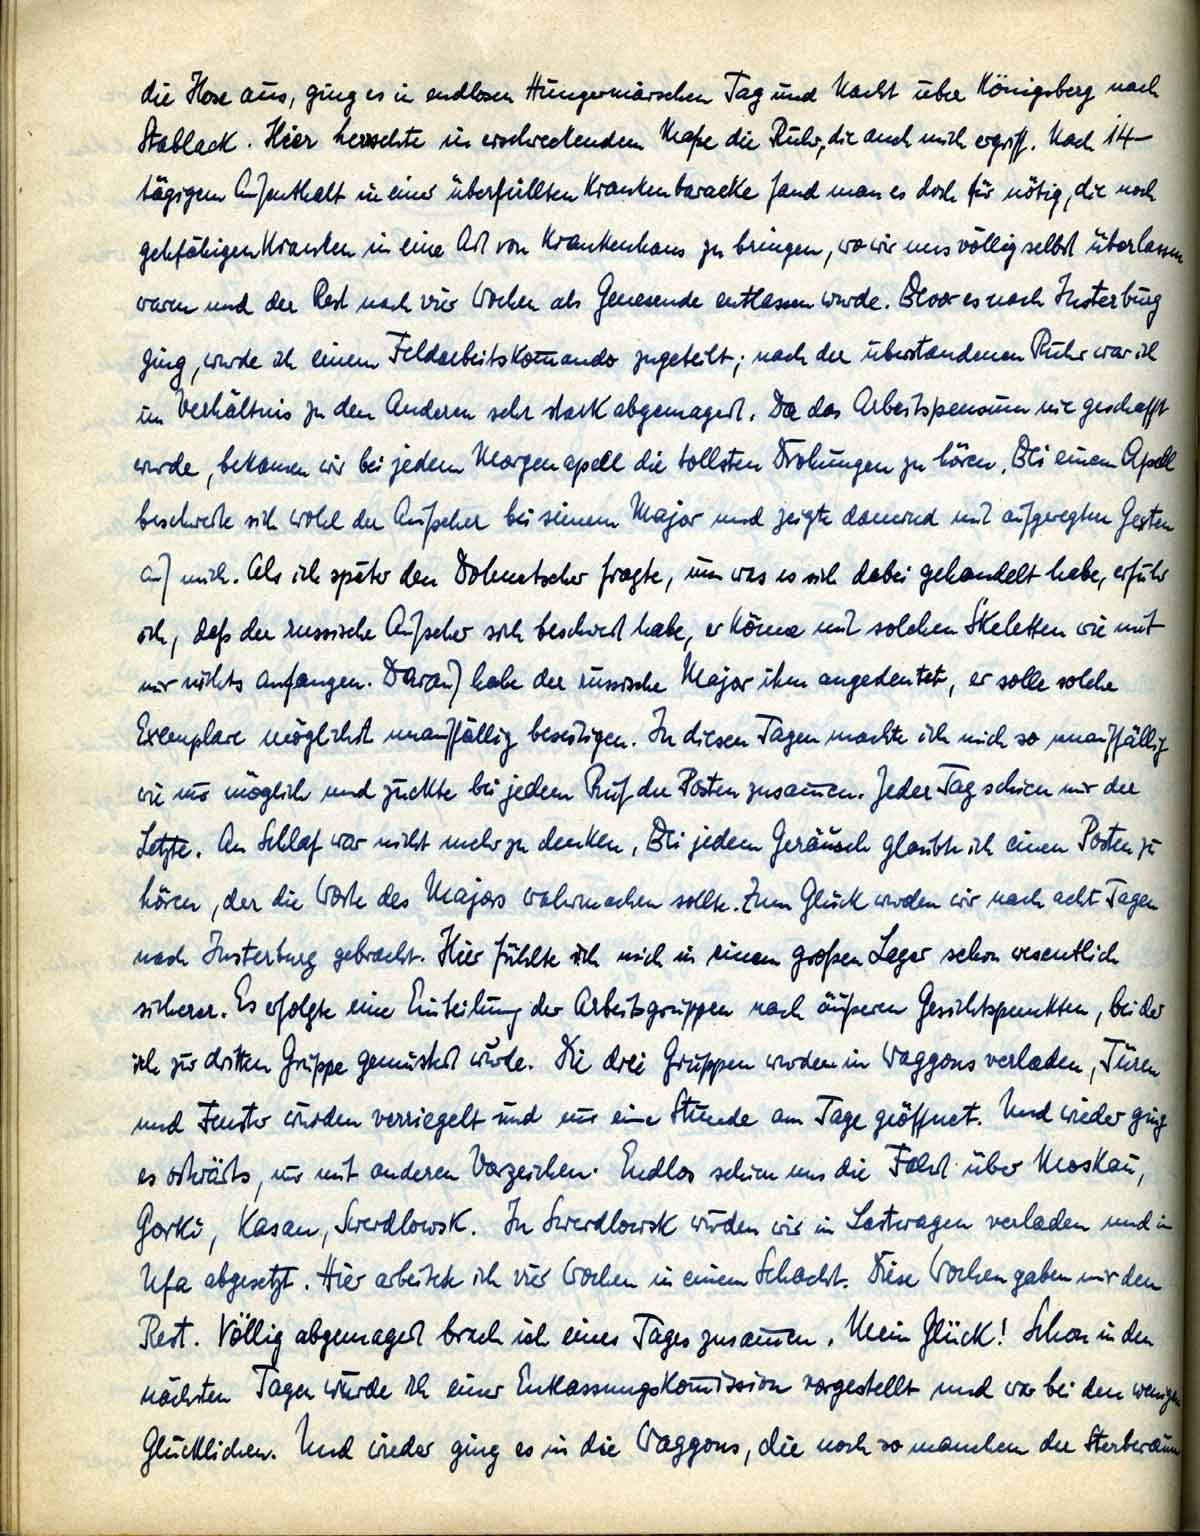 die Hose aus, ging es in endlosen Hungermärschen Tag und Nacht über Königsberg nach
Stablack. Hier herrschte in erschreckendem Maße die Ruhr, die auch mich ergriff. Nach 14-
tägigem Aufenthalt in einer überfüllten Krankenbaracke fand man es doch für nötig, die noch
gehfähigen Kranken in eine Art von Krankenhaus zu bringen, wo wir uns völlig selbst überlassen
waren und der Rest nach vier Wochen als Genesende entlassen wurde. Bevor es nach Insterburg
ging, wurde ich einem Feldarbeitskom̄ando zugeteilt; nach der überstandenen Ruhr war ich
im Verhältnis zu den Anderen sehr stark abgemagert. Da das Arbeitspensum nie geschafft
wurde, bekamen wir bei jedem Morgenapell die tollsten Drohungen zu hören. Bei einem Apell
beschwerte sich wohl der Aufseher bei seinem Major und zeigte dauernd mit aufgeregten Gesten
auf mich. Als ich später den Dolmetscher fragte, um was es sich dabei gehandelt habe, erfuhr
ich, daß der russische Aufseher sich beschwert habe, er könne mit solchen Skeletten wie mit
mir nichts anfangen. Darauf habe der russische Major ihm angedeutet, er solle solche
Exemplare möglichst unauffällig beseitigen. In diesen Tagen machte ich mich so unauffällig
wie nur möglich und zuckte bei jedem Ruf der Posten zusam̄en. Jeder Tag schien mir der
Letzte. An Schlaf war nicht mehr zu denken. Bei jedem Geräusch glaubte ich einen Posten zu
hören, der die Worte des Majors wahrmachen sollte. Zum Glück wurden wir nach acht Tagen
nach Insterburg gebracht. Hier fühlte ich mich in einem großen Lager schon wesentlich
sicherer. Es erfolgte eine Einteilung der Arbeitsgruppen nach äußeren Gesichtspunkten, bei der
ich zur dritten Gruppe gemustert wurde. Die drei Gruppen wurden in Waggons verladen, Türen
und Fenster wurden verriegelt und nur eine Stunde am Tage geöffnet. Und wieder ging
es ostwärts, nur mit anderen Vorzeichen. Endlos schien uns die Fahrt über Moskau,
Gorki, Kasan, Swerdlowsk. In Swerdlowsk wurden wir in Lastwagen verladen und in
Ufa abgesetzt. Hier arbeitete ich vier Wochen in einem Schacht. Diese Wochen gaben mir den
Rest. Völlig abgemagert brach ich eines Tages zusam̄en. Mein Glück! Schon in den
nächsten Tagen wurde ich einer Entlassungskom̄ission vorgestellt und war bei den wenigen
Glücklichen. Und wieder ging es in die Waggons, die noch so manchem der Sterberaum